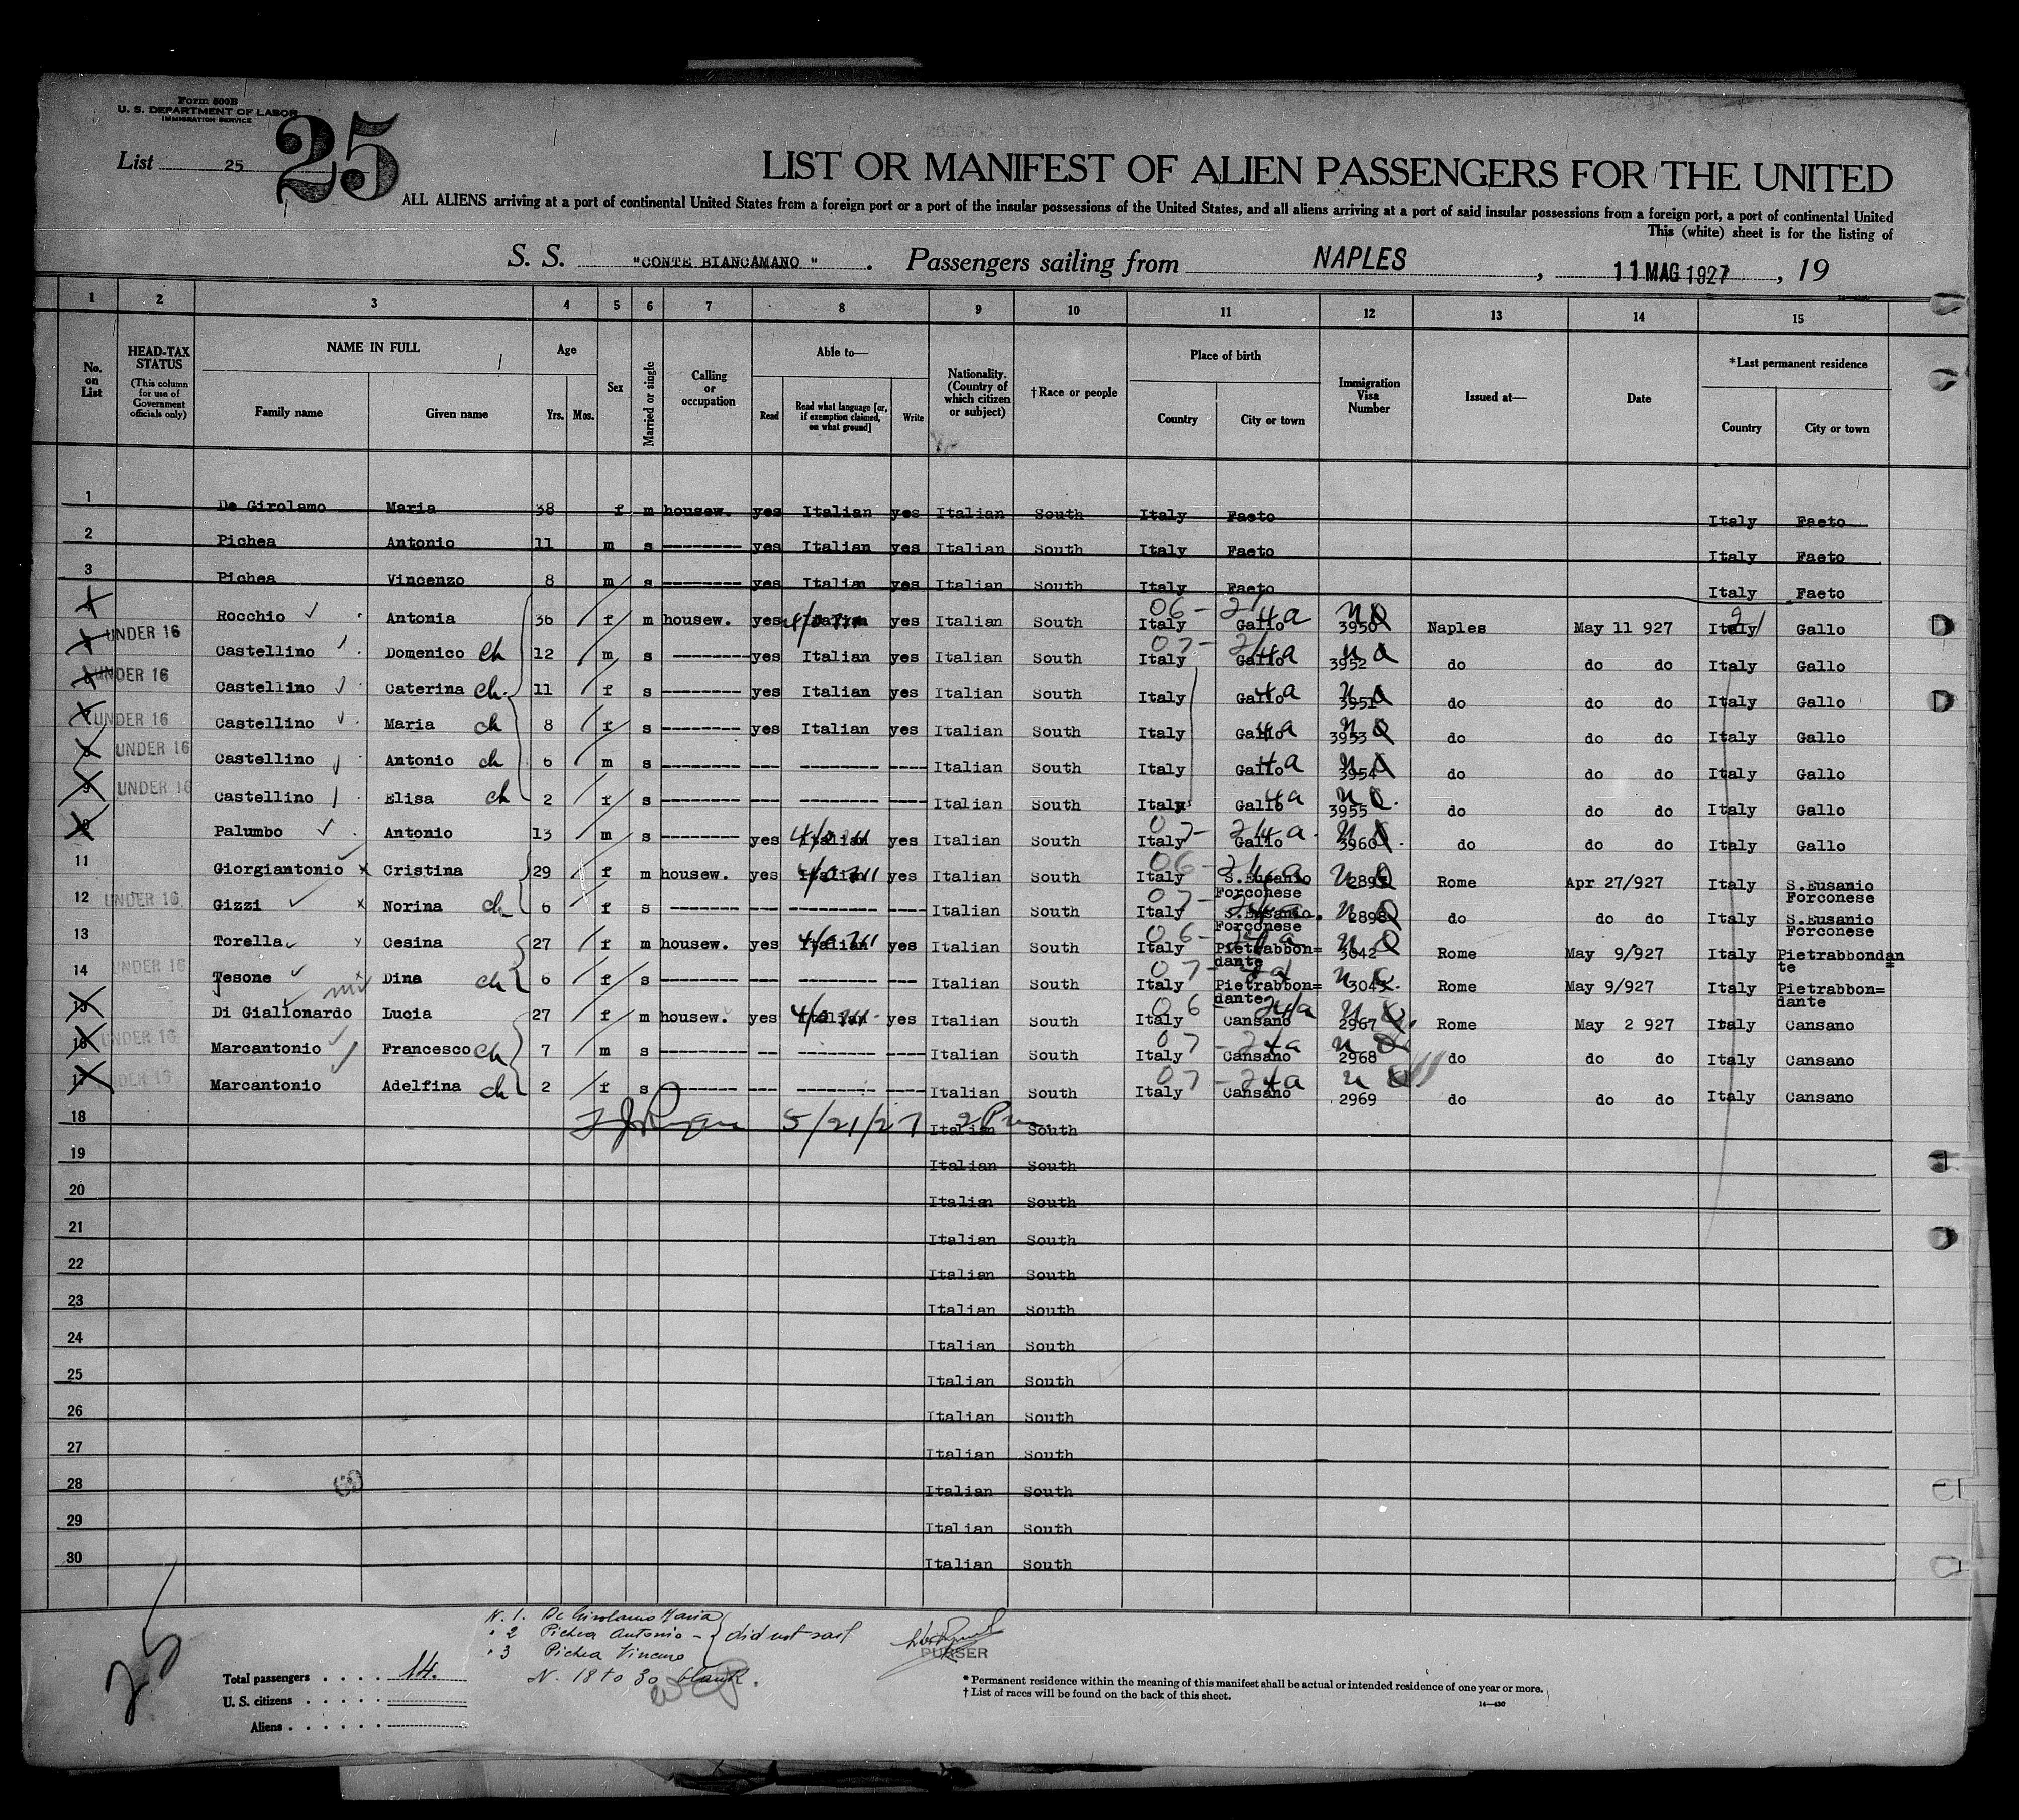 Form 500B
U. S. DEPARTMENT OF LABOR
IMMIGRATION SERVICE
List 25
25
LIST OR MANIFEST OF ALIEN PASSENGERS FOR THE UNITED
ALL ALIENS arriving at a port of continental United States from a foreign port or a port of the insular possessions of the United States, and all aliens arriving at a port of said insular possessions from a foreign port, a port of continental United
This (white) sheet is for the listing of
S. S. "CONTE BIANCAMANO". Passengers sailing from NAPLES, 11 MAG 1927, 19
1 2 3 4 5 6 7 8 9 10 11 12 13 14 15
No. on List
HEAD-TAX STATUS (This column for use of Government officials only)
NAME IN FULL
Family name Given name
Age
Yrs. Mos.
Sex
Married or single
Calling or occupation
Able to—
Read
Read what language [or, if exemption claimed, on what ground]
Write
Nationality. (Country of which citizen or subject)
†Race or people
Place of birth
Country City or town
Immigration Visa Number
Issued at—
Date
*Last permanent residence
Country City or town
1 De Girolamo Maria 38 f m housew. yes Italian yes Italian South Italy Faeto Italy Faeto
2 Pichea Antonio 11 m s -------- yes Italian yes Italian South Italy Faeto Italy Faeto
3 Pichea Vincenzo 8 m s -------- yes Italian yes Italian South Italy Faeto Italy Faeto
Rocchio Antonia 36 f m housew. yes Italian yes Italian South Italy Gallo 3950 Naples May 11 927 Italy Gallo
UNDER 16 Castellino Domenico ch 12 m s -------- yes Italian yes Italian South Italy Gallo 3952 do do do Italy Gallo
UNDER 16 Castellino Caterina ch. 11 f s -------- yes Italian yes Italian South Italy Gallo 3951 do do do Italy Gallo
UNDER 16 Castellino Maria ch 8 f s -------- yes Italian yes Italian South Italy Gallo 3953 do do do Italy Gallo
8 UNDER 16 Castellino Antonio ch 6 m s -------- --- -------- ---- Italian South Italy Gallo 3954 do do do Italy Gallo
9 UNDER 16 Castellino Elisa ch 2 f s -------- --- -------- ---- Italian South Italy Gallo 3955 do do do Italy Gallo
10 Palumbo Antonio 13 m s -------- yes Italian yes Italian South Italy Gallo 3960 do do do Italy Gallo
11 Giorgiantonio x Cristina 29 f m housew. yes Italian yes Italian South Italy S.Eusanio Forconese Rome Apr 27/927 Italy S.Eusanio Forconese
12 UNDER 16 Gizzi x Norina ch 6 f s -------- --- -------- ---- Italian South Italy S.Eusanio Forconese 2898 do do do Italy S.Eusanio Forconese
13 Torella Cesina 27 f m housew. yes Italian yes Italian South Italy Pietrabbon=dante 3042 Rome May 9/927 Italy Pietrabbondante
14 UNDER 16 Tesone Dina ch 6 f s -------- --- -------- ---- Italian South Italy Pietrabbon=dante 3043 Rome May 9/927 Italy Pietrabbon=dante
15 Di Giallonardo Lucia 27 f m housew. yes Italian yes Italian South Italy Cansano 2967 Rome May 2 927 Italy Cansano
16 UNDER 16 Marcantonio Francesco ch 7 m s --------- -- -------- ---- Italian South Italy Cansano 2968 do do do Italy Cansano
17 UNDER 16 Marcantonio Adelfina ch 2 f s ------- --- -------- ---- Italian South Italy Cansano 2969 do do do Italy Cansano
18 5/21/27 2 Pm Italian South
19 Italian South
20 Italian South
21 Italian South
22 Italian South
23 Italian South
24 Italian South
25 Italian South
26 Italian South
27 Italian South
28 Italian South
29 Italian South
30 Italian South
25
N. 1. De Girolamo Maria
" 2 Pichea Antonio - did not sail
" 3 Pichea Vincenzo
N. 18 to 30 blank.
PURSER
Total passengers . . . . 14.
U. S. citizens . . . . .
Aliens . . . . . .
* Permanent residence within the meaning of this manifest shall be actual or intended residence of one year or more.
† List of races will be found on the back of this sheet.
14—430